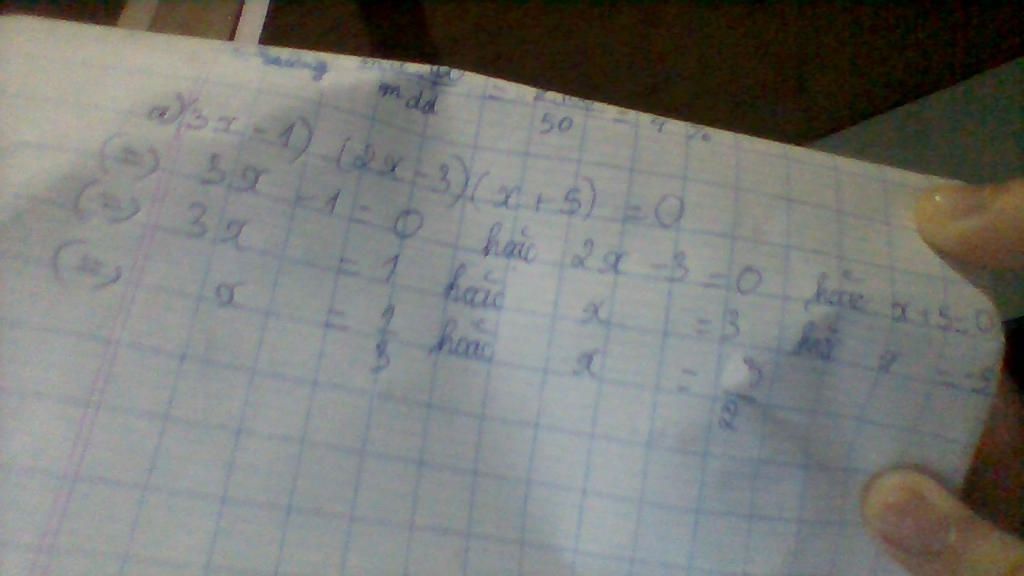 m dd = 50 = 4 %
a) 3x - 1) (2x - 3) (x + 5) = 0
(=) 3x - 1 = 0 hoặc 2x - 3 = 0 hoặc x + 5 = 0
(=) 3x = 1 hoặc x = 3 hoặc x = -5
(=) x = 1/3 hoặc x = 3/2